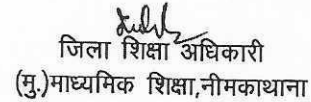 जिला शिक्षा अधिकारी
(मु.)माध्यमिक शिक्षा,नीमकाथाना